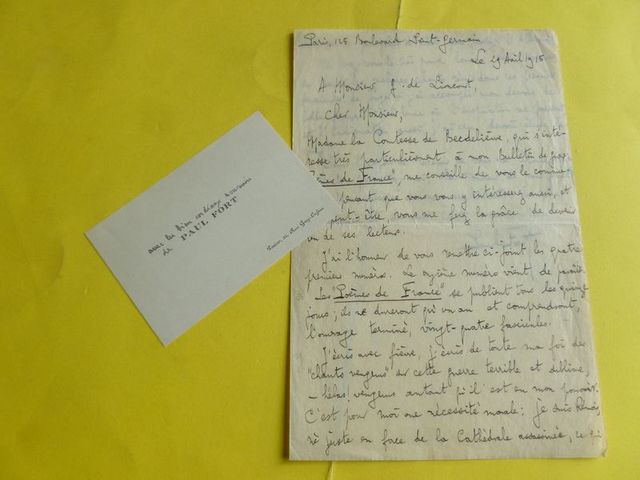 Paris, 125 Boulevard Saint-Germain
Le 29 Avril 1915
A Monsieur f. de Liancourt,
Cher Monsieur,
Madame la Comtesse de Becdelièvre, qui s'inté-
resse très particulièrement à mon Bulletin de
Poèmes de France", me conseille de vous le commu-
pensant que vous vous y intéresserez aussi, et
peut-être, vous me ferez la grâce de devenir
un de ses lecteurs.
J'ai l'honneur de vous remettre ci-joint les quatre
premiers numéros. Le sixième numéro vient de paraître
Les "Poèmes de France" se publient tous les quinze
jours; ils ne dureront qu'un an et comprendront,
l'ouvrage terminé, vingt-quatre fascicules.
J'écris avec fièvre, j'écris de toute ma foi des
"chants vengeurs" sur cette guerre terrible et sublime,
— hélas, vengeurs autant qu'il est en mon pouvoir.
C'est pour moi une nécessité morale: Je suis Rémois,
né juste en face de la Cathédrale assassinée, ce qui
avec les bien cordiaux
de
PAUL FORT